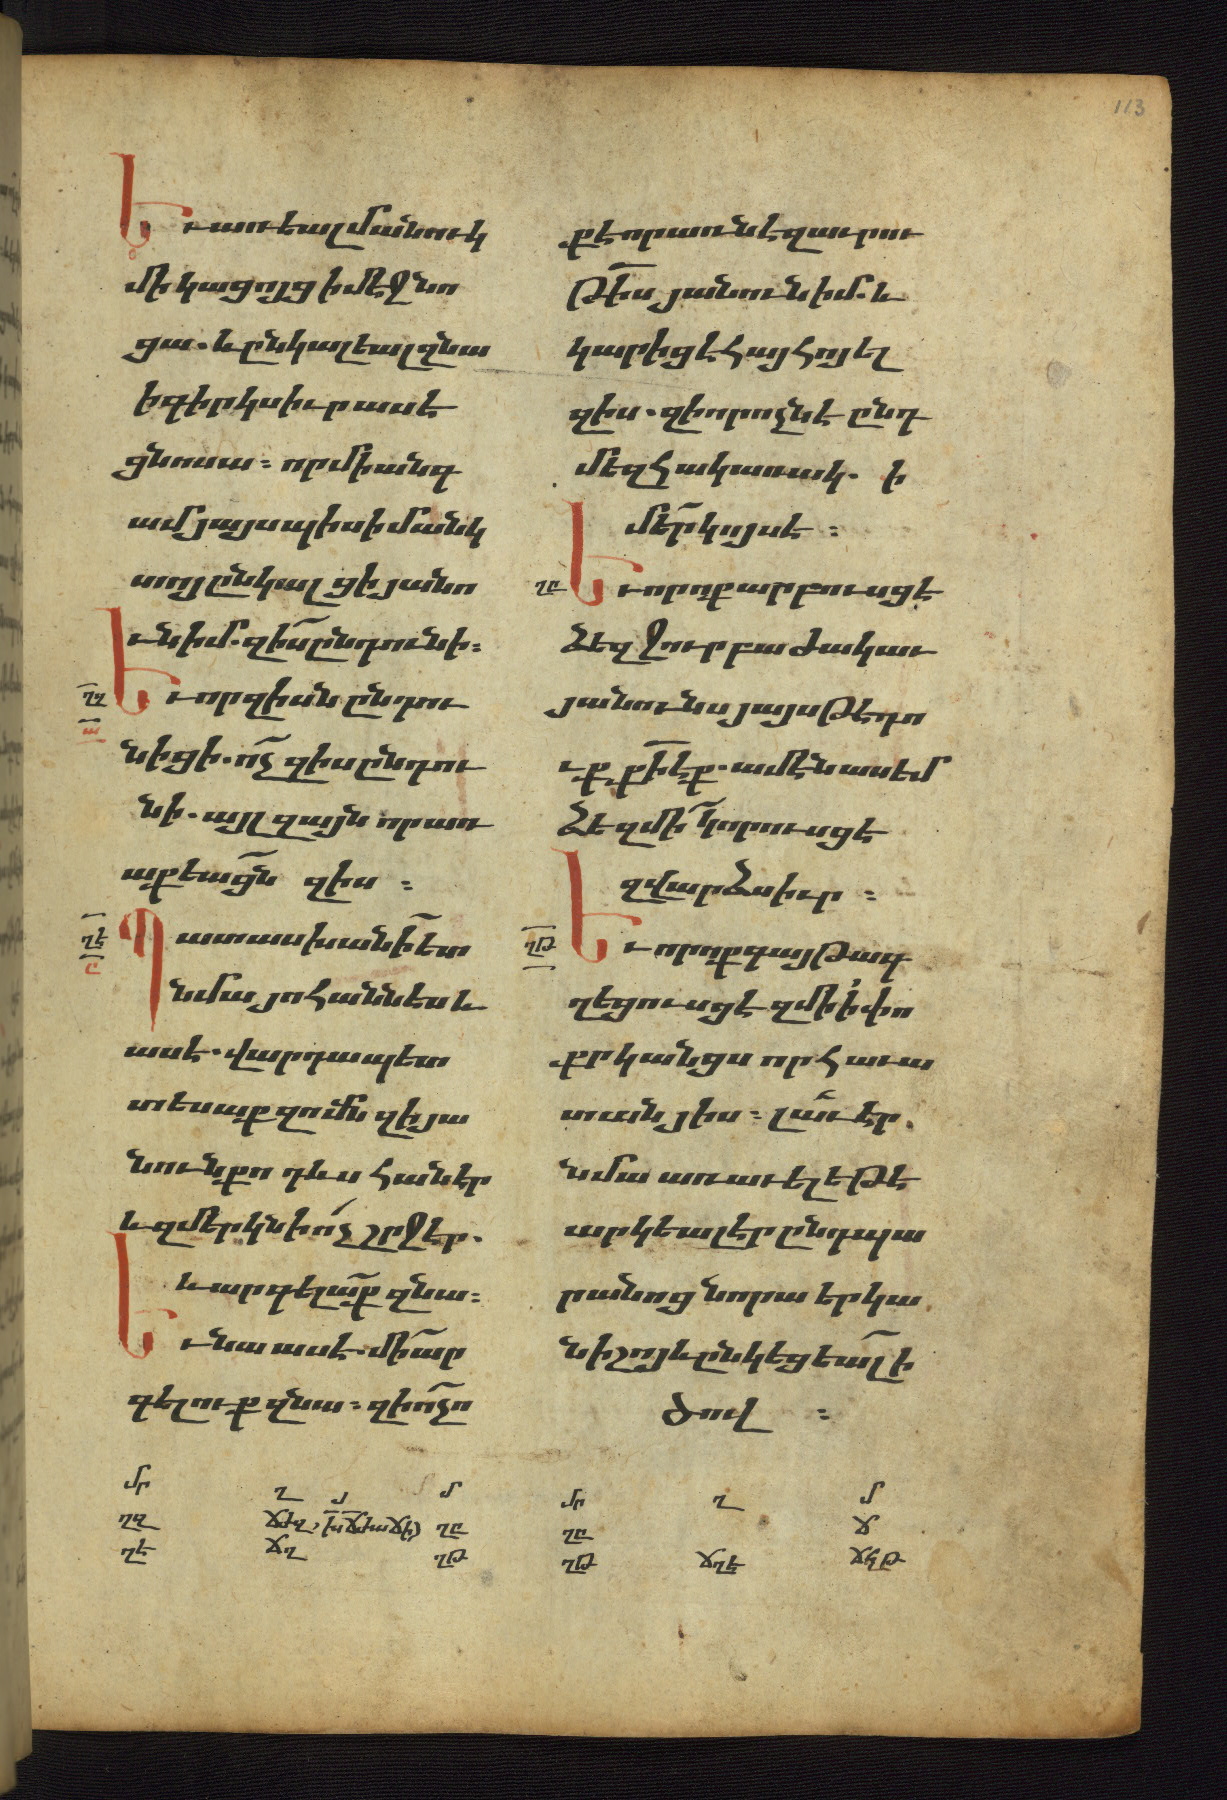 113
Եւ առեալ մանուկ
մի կացոյց ի մէջ նո
ցա. և ընկալեալ զնա
ի գիրկս իւր ասէ
ցնոսա: որ միանգ
ամ յայսպիսի մանկ
տոյ ընկալցի յանո
ւն իմ. զիս ընդունի:
ղզ
Եւ որ զիսն ընդու
ա
նիցի. ոչ զիս ընդու
նի. այլ զայն որ առ
աքեացն զիս :
ղէ
Պատասխանի ետ
ը
նմա յոհաննէս և
ասէ. վարդապետ
տեսաք զոմն զի յա
նուն քո դևս հանէր
և զմերկնի ոչ շրջէր.
և արգելաք զնա:
Եւ նա ասէ. մի ար
գելուք զնա: զի ոչ ո
ք է որ առնէ զաւրու
թիս յանուն իմ. և
կարիցէ հայհոյել
զիս. զի որ ոչն է ընդ
մեզ հակառակ. ի
մեր կոյս է :
ղը
Եւ որ ոք արբուսցէ
ձեզ ջուր բաժակաւ
յանունս յայս թէ դո
ւք քի էք. ամէն ասեմ
ձեզ մի կորուսցէ
զվարձս իւր :
ղթ
Եւ որ ոք գայթագ
ղեցուսցէ զմի ի փո
քրկանցս որ հաւա
տան յիս: լաւ էր
նմա առաւել եթէ
արկեալ էր ընդ պա
րանոց նորա երկա
նիշոյ և ընկեցեալ ի
ծով :
մր ղ յ մ
ղզ ղը
ղէ ճղ ղթ
մր ղ մ
ղը ճ
ղթ ճղէ ճհթ